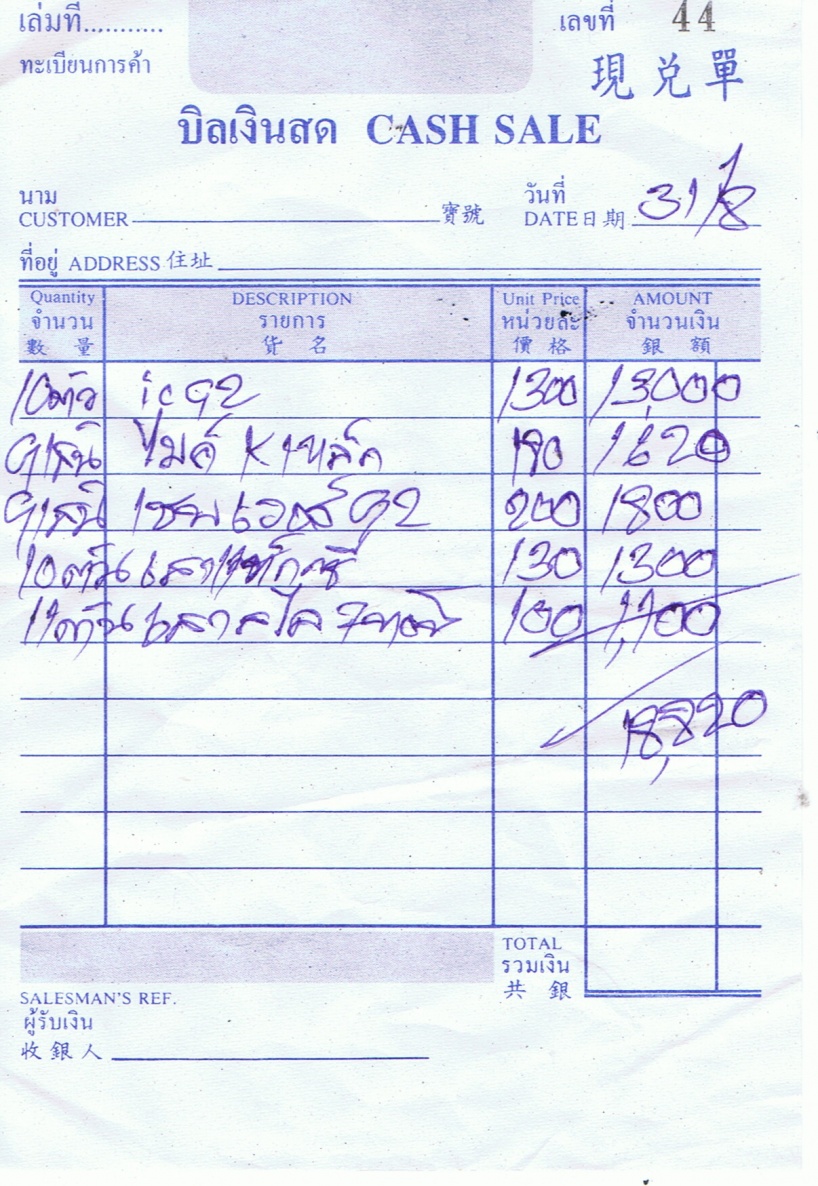 เล่มที่............ เลขที่ 44
ทะเบียนการค้า 現兑單
บิลเงินสด CASH SALE
นาม วันที่
CUSTOMER 寶號 DATE日期 31/8
ที่อยู่ ADDRESS 住址
Quantity DESCRIPTION Unit Price AMOUNT
จำนวน รายการ หน่วยละ จำนวนเงิน
數量 貨名 價格 銀額
10ตัว ic G2 1300 13,000
ไมค์ K 190 1620
G2 200 1800
130 1300
100 1,100
18,820
TOTAL
รวมเงิน
共銀
SALESMAN'S REF.
ผู้รับเงิน
收銀人